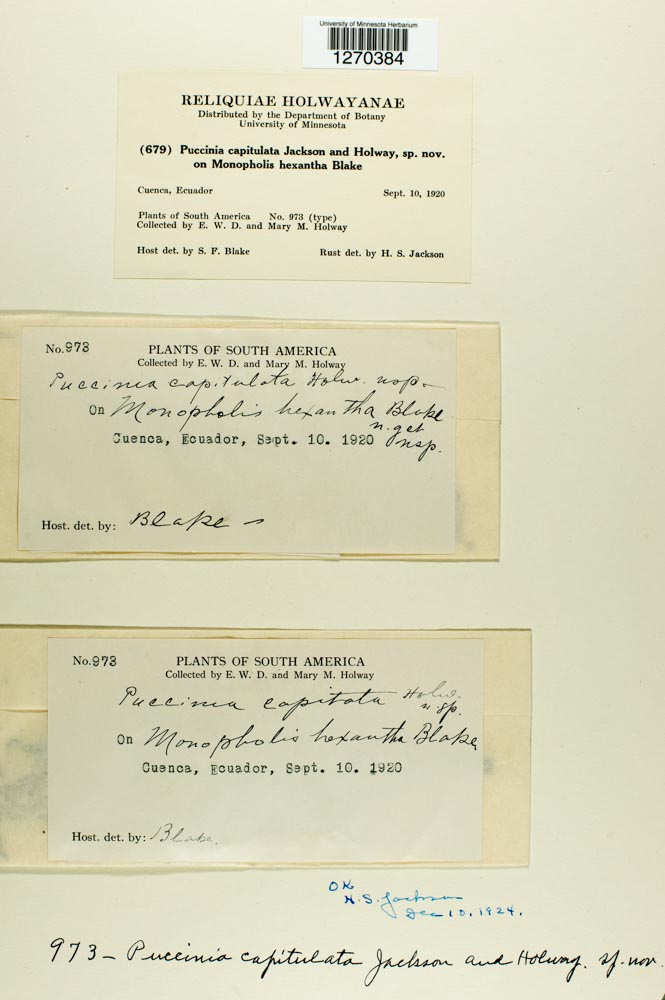 University of Minnesota Herbarium
1270384
RELIQUIAE HOLWAYANAE
Distributed by the Department of Botany
University of Minnesota
(679) Puccinia capitulata Jackson and Holway, sp. nov.
on Monopholis hexantha Blake
Cuenca, Ecuador Sept. 10, 1920
Plants of South America No. 973 (type)
Collected by E. W. D. and Mary M. Holway
Host det. by S. F. Blake Rust det. by H. S. Jackson
No. 973 PLANTS OF SOUTH AMERICA
Collected by E. W. D. and Mary M. Holway
Puccinia capitulata Holw. nsp.
On Monopholis hexantha Blake
n. g et
Cuenca, Ecuador, Sept. 10. 1920 nsp.
Host. det. by: Blake
No. 973 PLANTS OF SOUTH AMERICA
Collected by E. W. D. and Mary M. Holway
Puccinia capitata Holw.
n. sp.
On Monopholis hexantha Blake
Cuenca, Ecuador, Sept. 10. 1920
Host. det. by: Blake.
OK
H. S. Jackson
Dec 10. 1924.
973 - Puccinia capitulata Jackson and Holway. sp. nov.